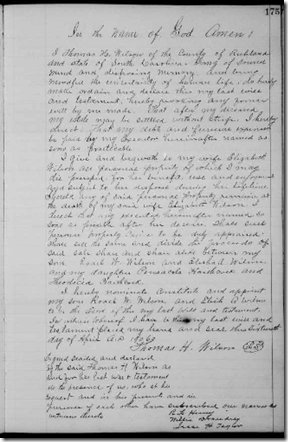 175
In the name of God Amen:
I Thomas H. Wilson of the County of Richland
and state of South Carolina. Being of sound
mind and disposing memory, and being
mindful the uncertainty of human life, do hereby
make ordain and declare this my last will
and testament, hereby revoking any former
will by me made. That after my decease,
my estate may be settled without strife. I hereby
direct. That my debts and funeral expenses
be paid by my Executor hereinafter named as
soon as practicable.
I give and bequeath to my wife Elizabeth
Wilson all personal property of which I may
die possessed, for her benefit use and enjoyment
and subject to her disposal during her lifetime.
Should any of said personal property remain
at death of my said wife Elizabeth Wilson. I
direct that my executor hereinafter named
soon as possible after her decease shall said
personal property to be duly appraised.
sell the same and divide the proceeds of
said sale share and share alike between my
son W. Wilson and Wilson
and my daughter
I hereby nominate constitute and appoint
my son W. Wilson and Wilson
to the of this my last will and testament.
In witness whereof I have to this my last will and
testament placed my hand and seal this
day of April A.D.
Thomas H. Wilson
Signed sealed and declared
by the said Thomas H. Wilson as
and for his last will & testament
in the presence of us, who at his
request and in his presence and in
presence of each other have subscribed our names as
witnesses thereto
H. Taylor